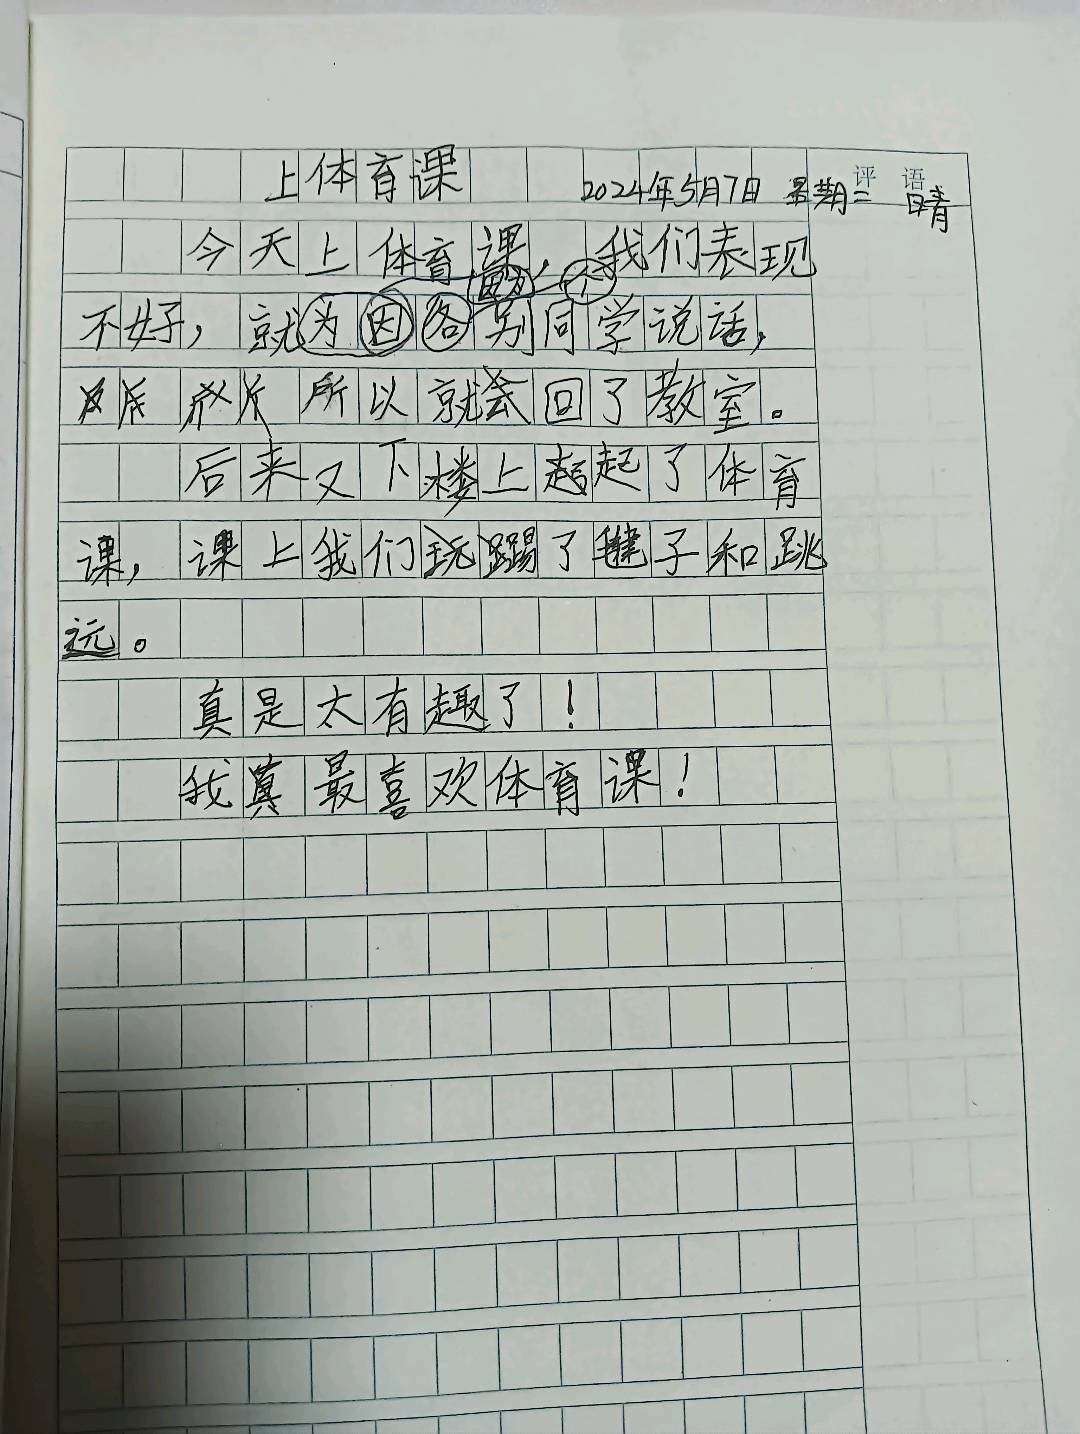 上体育课
2024年5月7日 星期二 晴
评 语
今天上体育课,我们表现
因为 个
不好,就为因各别同学说话,
所以就会回了教室。
后来又下楼上起了体育
课,课上我们玩踢了毽子和跳
远。
真是太有趣了!
我真最喜欢体育课!